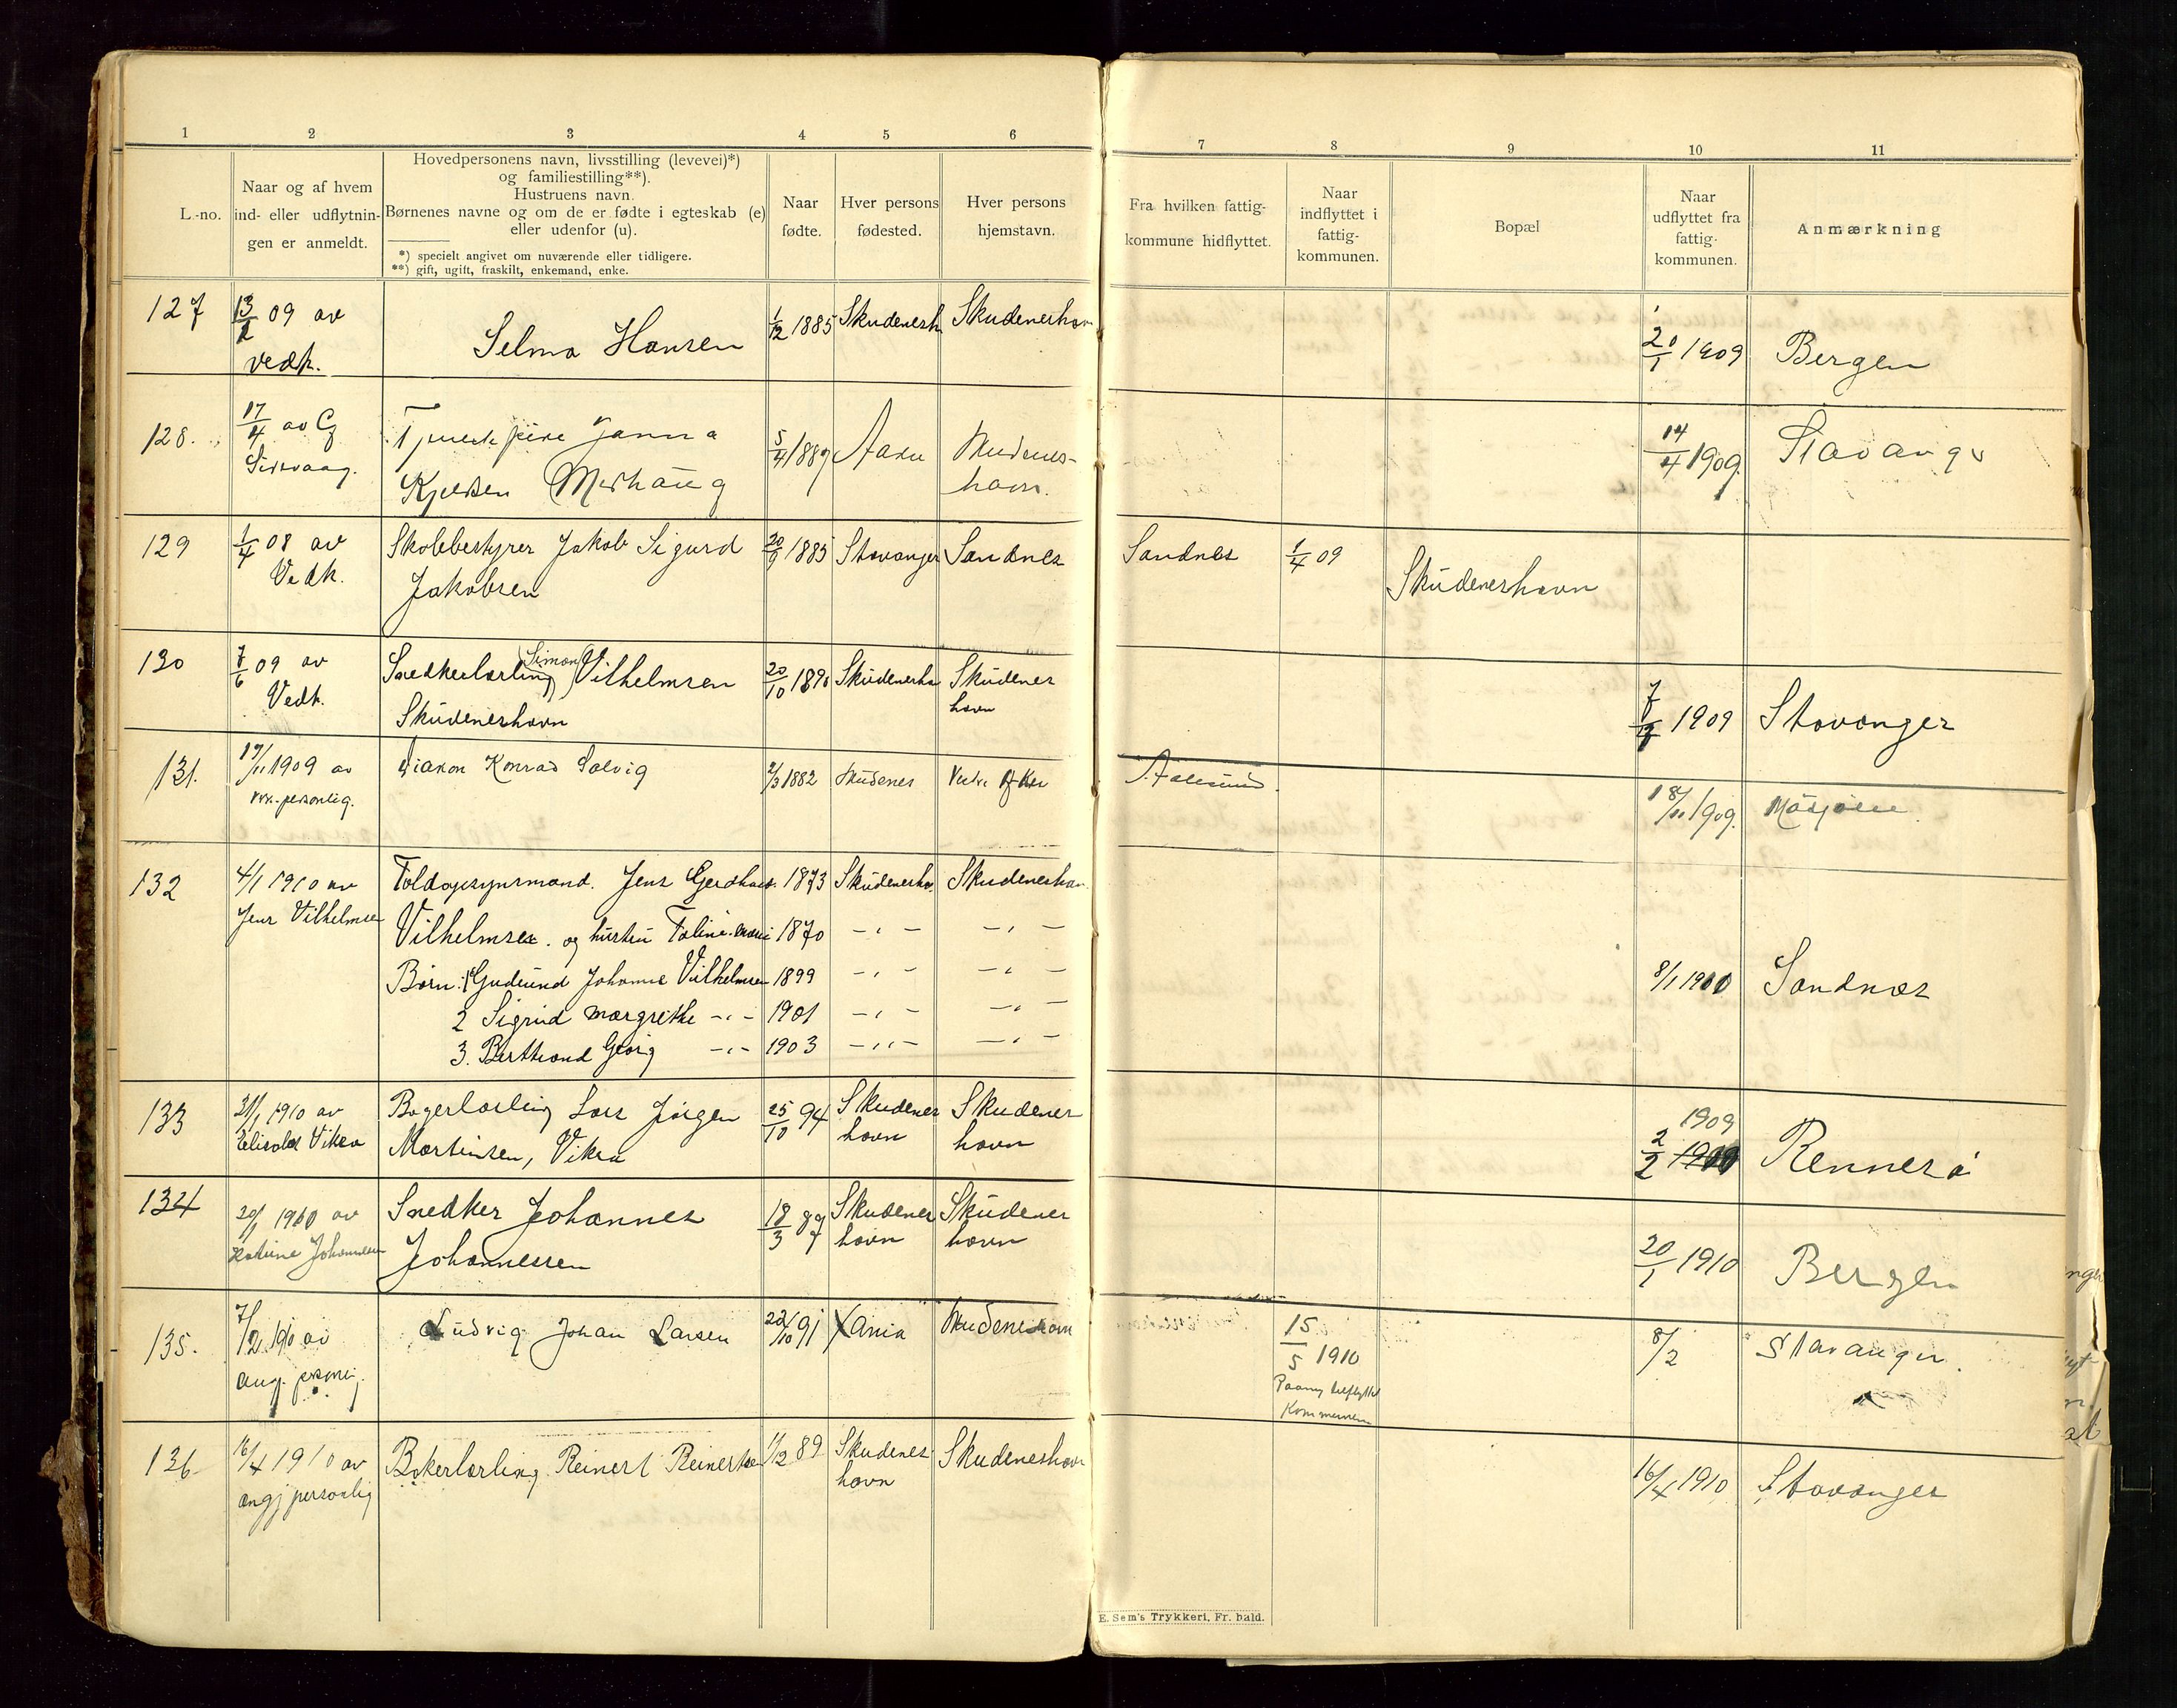 1 2 3 4 5 6 7 8 9 10 11
L.-no.
Naar og af hvem
ind- eller udflytnin-
gen er anmeldt.
Hovedpersonens navn, livsstilling (levevei)*)
og familiestilling**).
Hustruens navn.
Børnenes navne og om de er fødte i egteskab (e)
eller udenfor (u).
*) specielt angivet om nuværende eller tidligere.
**) gift, ugift, fraskilt, enkemand, enke.
Naar
fødte.
Hver persons
fødested.
Hver persons
hjemstavn.
Fra hvilken fattig-
kommune hidflyttet.
Naar
indflyttet i
fattig-
kommunen.
Bopæl
Naar
udflyttet fra
fattig-
kommunen.
Anmærkning
127 13/1 09 av Selma Hansen 1/12 1885 Skudenesh Skudeneshavn 20/1 1909 Bergen
vedk.
128. 17/4 av Tjenestepike Janna 5/4 1889 Skudenes- 14/4 1909. Stavanger
havn.
129 1/4 08 av Skobestyrer Jakob Sigurd 20/9 1885 Stavanger Sandnes Sandnes 1/4 09 Skudeneshavn
Vedk. Jakobsen
130 7/6 09 av Snedkerlærling (Simon) Vilhelmsen 20/10 1890 Skudeneshav Skudenes 1909 Stavanger
Vedk. Skudeneshavn havn
131. 17/11 1909 av Diakon Konrad Solvig 2/3 1882 Skudenes Vestre Aker Aalesund. 18/11 1909. Mosjøen.
personlig.
132 4/1 1910 av Toldopsynsmand. Jens Gerdhard. 1873 Skudenesha. Skudeneshavn
Jens Vilhelmsen Vilhelmsen. og hustru Taline Marie 1870 – " – – " –
Børn: 1 Gudrund Johanne Vilhelmsen 1899 – " – – " – 8/1 1910 Sandnes
2 Sigrid Margrethe – " – 1901 – " – – "
3. Berthrand Georg – " – 1903 – " – – " –
133 31/1 1910 av Bagerlærling Lars Jørgen 25/10 94 Skudenes Skudenes 1909
Elisabet Vikra Martinsen, Vikra havn havn 2/2 1900 Rennesø
134 20/1 1910 av Snedker Johannes 18/3 89 Skudenes Skudenes 20/1 1910 Bergen
Katrine Johannesen Johannessen havn havn
135. 7/2 1910 av Ludvig Johan Larsen 22/10 91 Xania Skudeneshavn 15/5 1910 8/2 Stavanger.
ang. personlig. Paany tilflyttet
Kommunen
136 16/4 1910 av Bakerlærling Reinert Reinertsen 1/2 89 Skudenes Skudeneshavn 16/4 1910 Stavanger
angj personlig havn
E. Sem's Trykkeri, Fr. hald.